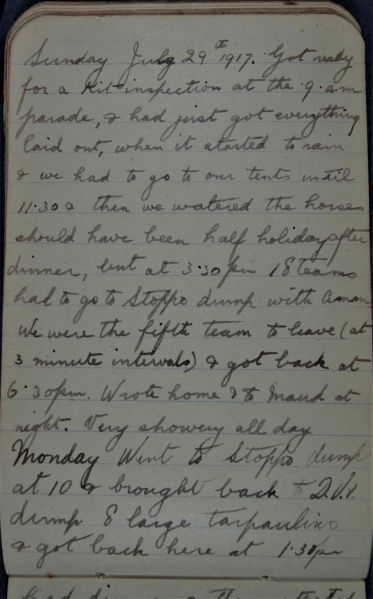 Sunday July 29th 1917. Got ready
for a Kit inspection at the 9 am
parade, & had just got everything
laid out, when it started to rain
& we had to go to our tents until
11.30 & then we watered the horses
should have been half holiday after
dinner, but at 3.30 pm 18 teams
had to go to Stoppo dump with amm
We were the fifth team to leave (at
3 minute intervals) & got back at
6.30pm. Wrote home & to Maud at
night. Very showery all day
Monday Went to Stoppo dump
at 10 & brought back to
dump 8 large tarpaulins
& got back here at 1.30pm